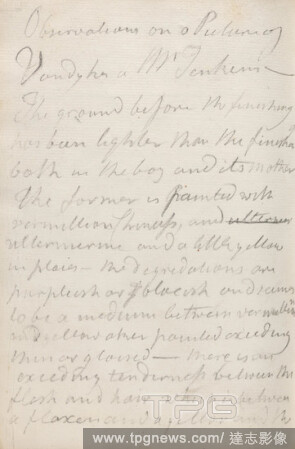 Observations on a Picture of
Vandyke a Mr Jenkins
The ground before the finishing
has been lighter than the finish
both in the boy and its mother
The former is painted with
vermillion and
ultermerine and a little yellow
in places — the degradations are
purpleish or blackish and seems
to be a medium between vermillion
and painted exceeding
thin or glaised — there is an
exceeding tenderness between the
flesh and hair
a flaxen and a yellow
TPG
www.tpgnews.com / 達志影像